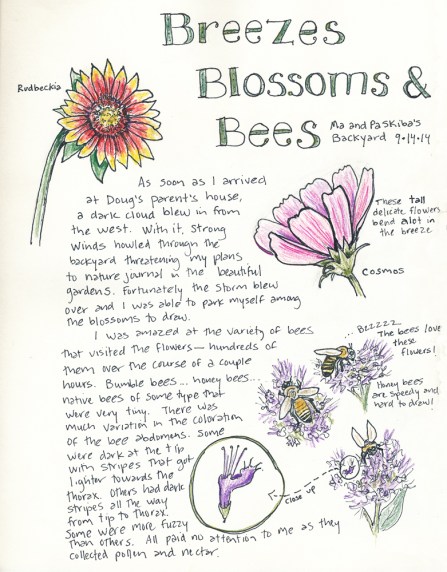 Breezes
Blossoms &
Bees
Ma and Pa Skiba's
Backyard 9·14·14
Rudbeckia
As soon as I arrived
at Doug's parent's house,
a dark cloud blew in from
the west. With it, strong
winds howled through the
backyard threatening my plans
to nature journal in the beautiful
gardens. Fortunately the storm blew
over and I was able to park myself among
the blossoms to draw.
These tall
delicate flowers
bend alot in
the breeze
Cosmos
I was amazed at the variety of bees
that visited the flowers — hundreds of
them over the course of a couple
hours. Bumble bees... honey bees...
native bees of some type that
were very tiny. There was
much variation in the coloration
of the bee abdomens. Some
were dark at the tip
with stripes that got
lighter towards the
thorax. Others had dark
stripes all the way
from tip to thorax.
Some were more fuzzy
than others. All paid no attention to me as they
collected pollen and nectar.
...Bzzzzz
The bees love
these
flowers!
Honey bees
are speedy and
hard to draw!
close up